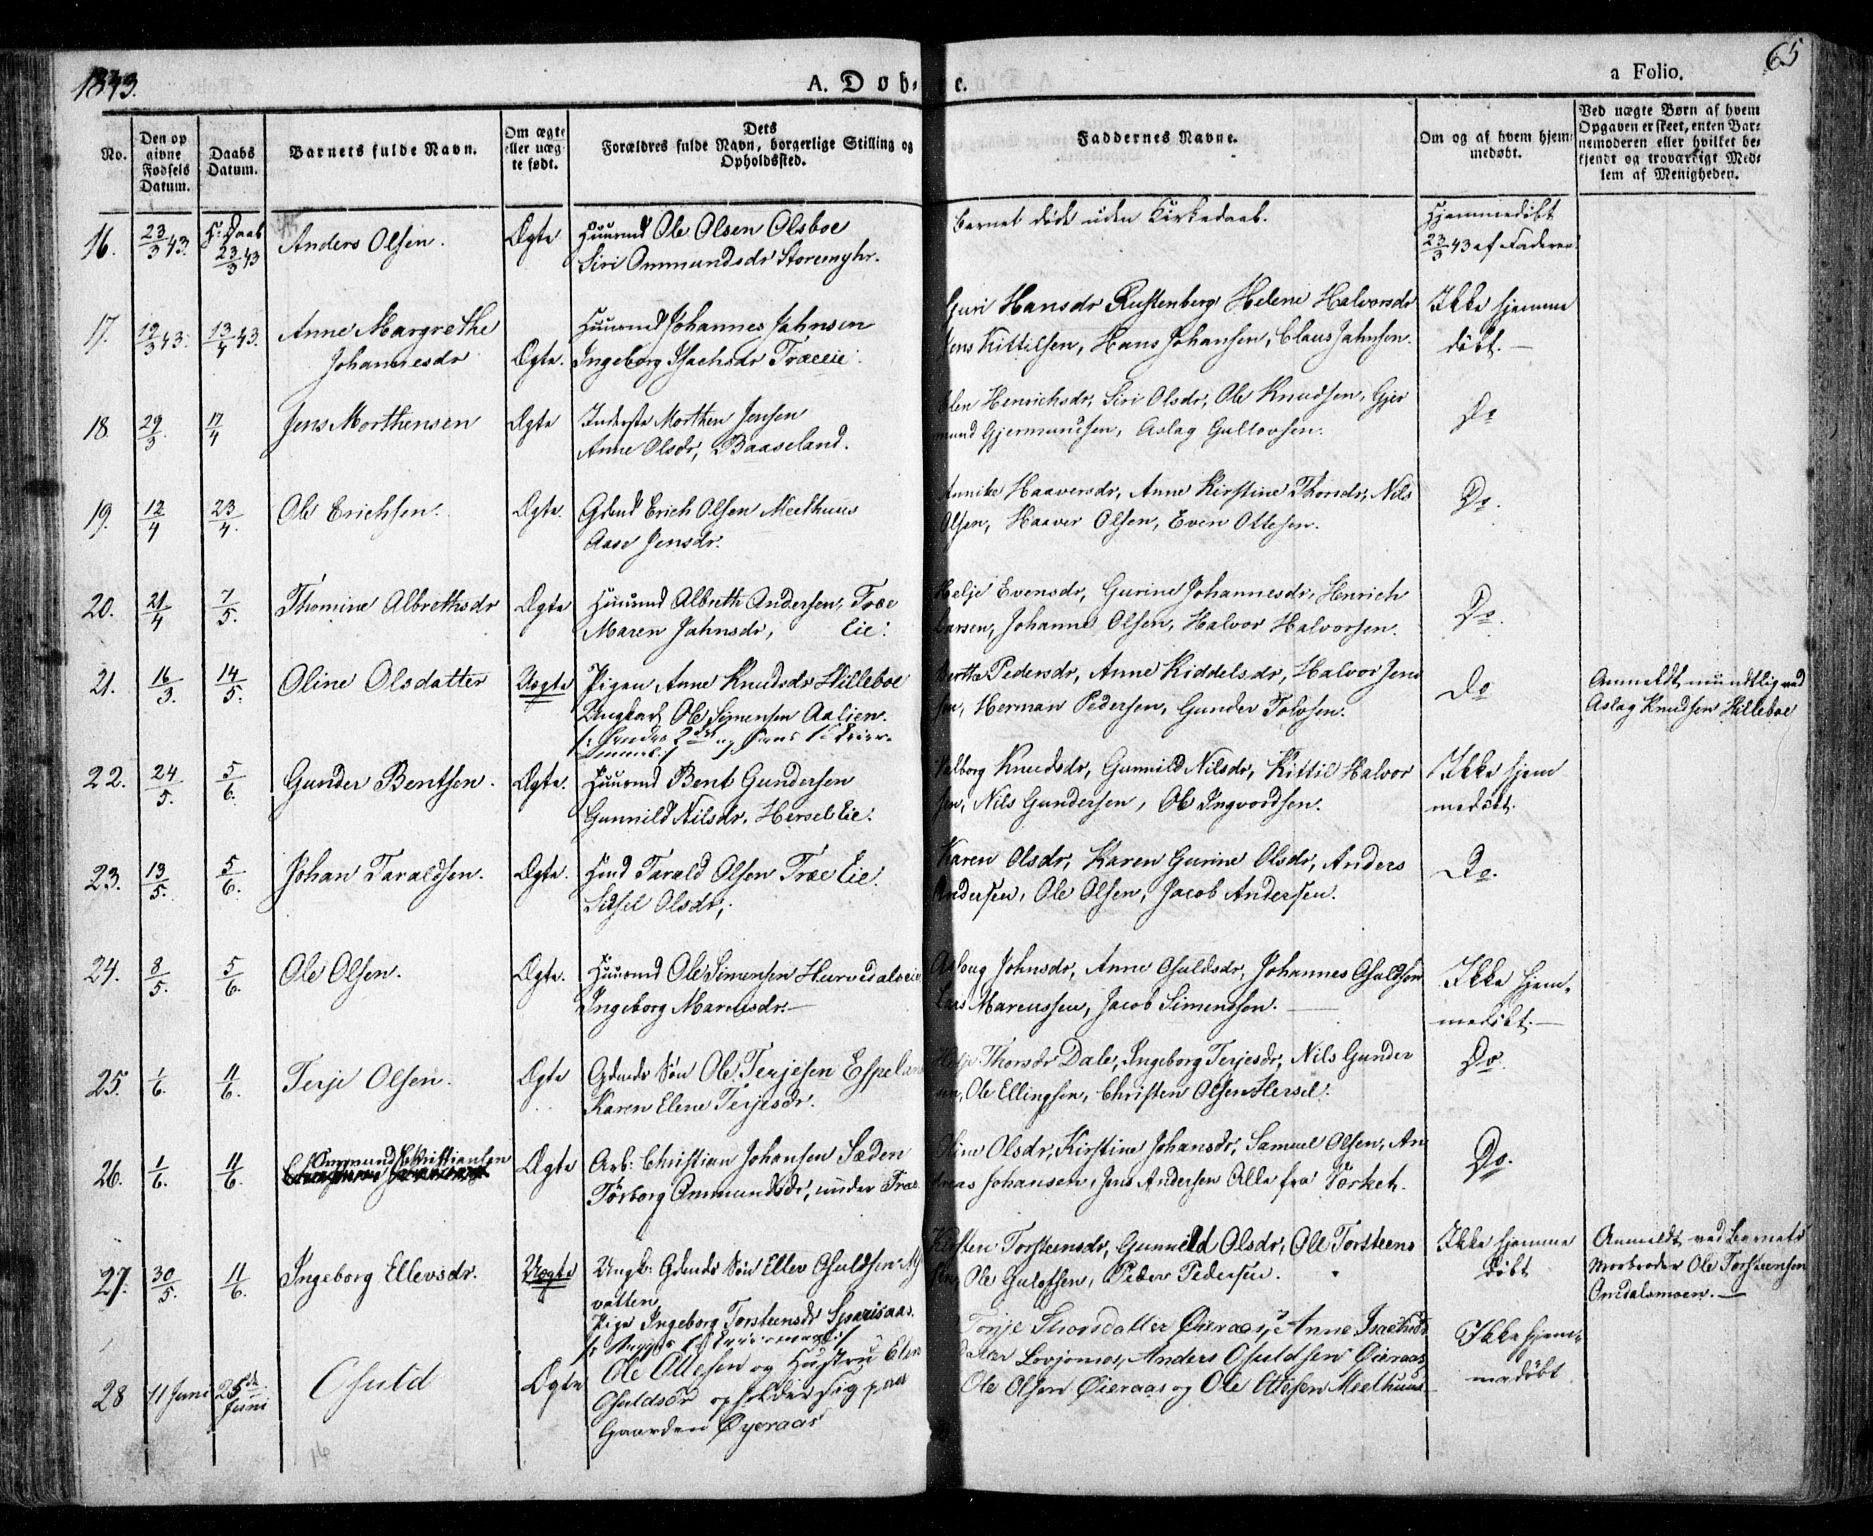 1843.
A. Døb- e.
a Folio.
65
No.
Den op
givne
Fødsels
Datum.
Daabs
Datum.
Barnets fulde Navn.
Om ægte
eller uæg-
te født.
Dets
Forældres fulde Navn, borgerlige Stilling og
Opholdssted.
Faddernes Navne.
Om og af hvem hjem-
medøbt.
Ved uægte Børn af hvem
Opgaven er skeet, enten Bar-
nemoderen eller hvilket be-
kjendt og troværdigt Med-
lem af Menigheden.
16. 23/3 43. H: Daab 23/3 43 Anders Olsen. Ægte
Huusmd Ole Olsen Olsboe
Siri Ommundsdr Storemyhr.
Barnet døde uden Kirkedaab.
Hjemmedøbt
23/3 43 af Faderen.
17. 19/3 43. 13/4 43. Anne Margrethe
Johannesdr
Ægte.
Huusmd Johannes Jahnsen
Ingeborg Isachsdr Træeie.
Guri Hansdr Rustenberg Helene Halvorsdr
Jens Kittilsen, Hans Johansen, Claus Jahnsen.
Ikke hjemme
døbt.
18 29/3. 17/4 Jens Morthensen Ægte
Inderste Morthen Jensen
Anne Olsdr, Baaseland.
Elen Henrichsdr, Siri Olsdr, Ole Knudsen, Gjer
mund Gjermundsen, Aslag Gullovsen.
Do
19. 12/4 23/4. Ole Erichsen. Ægte.
Gdmd Erich Olsen Meelhuus
Aase Jensdr.
Annike Haaversdr, Anne Kirstine Thorsdr, Nils
Olsen, Haaver Olsen, Even Ottesen.
Do.
20. 21/4 7/5. Thomine Albrethsdr Ægte
Huusmd Albreth Andersen, Træe
Maren Jahnsdr, Eie.
Helje Evensdr, Gurine Johannesdr, Henrich
Larsen, Johannes Olsen, Halvor Halvorsen.
Do.
21. 16/3. 14/5. Oline Olsdatter Uægte
Pigen Anne Knudsdr Hilleboe
Ungkarl Ole Simensen Aalien.
Berthe Pedersdr, Anne Kiddelsdr, Halvor Jen
sen, Herman Pedersen, Gunder Tolvsen.
Do
Anmeldt mundtlig ved
Aslag Knudsen Hilleboe
22. 24/5. 5/6. Gunder Bentsen. Ægte.
Huusmd Bent Gundersen
Gunnild Nilsdr. Hersel Eie.
Valborg Knudsdr, Gunnild Nilsdr, Kittil Halvor
sen, Nils Gundersen, Ole Ingvordsen.
Ikke hjem
medøbt.
23. 13/5. 5/6. Johan Taraldsen. Ægte.
Hmd Tarald Olsen Træe Eie.
Sidsel Olsdr,
Karen Olsdr, Karen Gurine Olsdr, Anders
Andersen, Ole Olsen, Jacob Andersen.
Do.
24. 8/5. 5/6. Ole Olsen. Ægte.
Huusmd Ole Simensen Hurvedalseie
Ingeborg Marcusdr.
Aslaug Johnsdr, Anne Osuldsdr, Johannes Osuldsen
Lars Marcussen, Jacob Simensen.
Ikke hjem-
medøbt.
25. 1/6. 11/6. Terje Olsen. Ægte
Gdmds Søn Ole Terjesen Espeland
Karen Elene Terjesdr.
Helje Thorsdr Dale, Ingeborg Terjesdr, Nils Gunder
sen, Ole Ellingsen, Christen Olsen Hersel.
Do.
26. 1/6. 11/6. Ommund Christiansen Ægte
Arb: Christian Johansen Sæden
Torborg Ommundsdr, under Træe
Oline Olsdr, Kirstine Johansdr, Samuel Olsen, An
dreas Johansen, Jens Andersen Alle fra Værket.
Do.
27. 30/5. 11/6. Ingeborg Ellevsdr. Uægte
Ungk: Gdmds Søn Ellev Osuldsen My
vatten
Pige Ingeborg Torsteensdr Sparsaas.
Kirsten Torsteensdr, Gunnild Olsdr, Ole Torsteens
sen, Ole Gulofsen, Peder Pedersen.
Ikke hjemme
døbt
Anmeldt ved Barnets
Morbroder Ole Torsteensen
Omdalsmoen.
28 11 Juni 25de Juni Osuld Ægte
Ole Ottesen og Hustru Elen
Osuldsdr opholder sig paa
Gaarden Øyeraas
Torje Thorsdatter Øieraas, Anne Isachs
datter Lovjomos, Anders Osuldsen Øieraas,
Ole Olsen Øieraas og Ole Ottesen Meelhuus
Ikke hjem-
medøbt